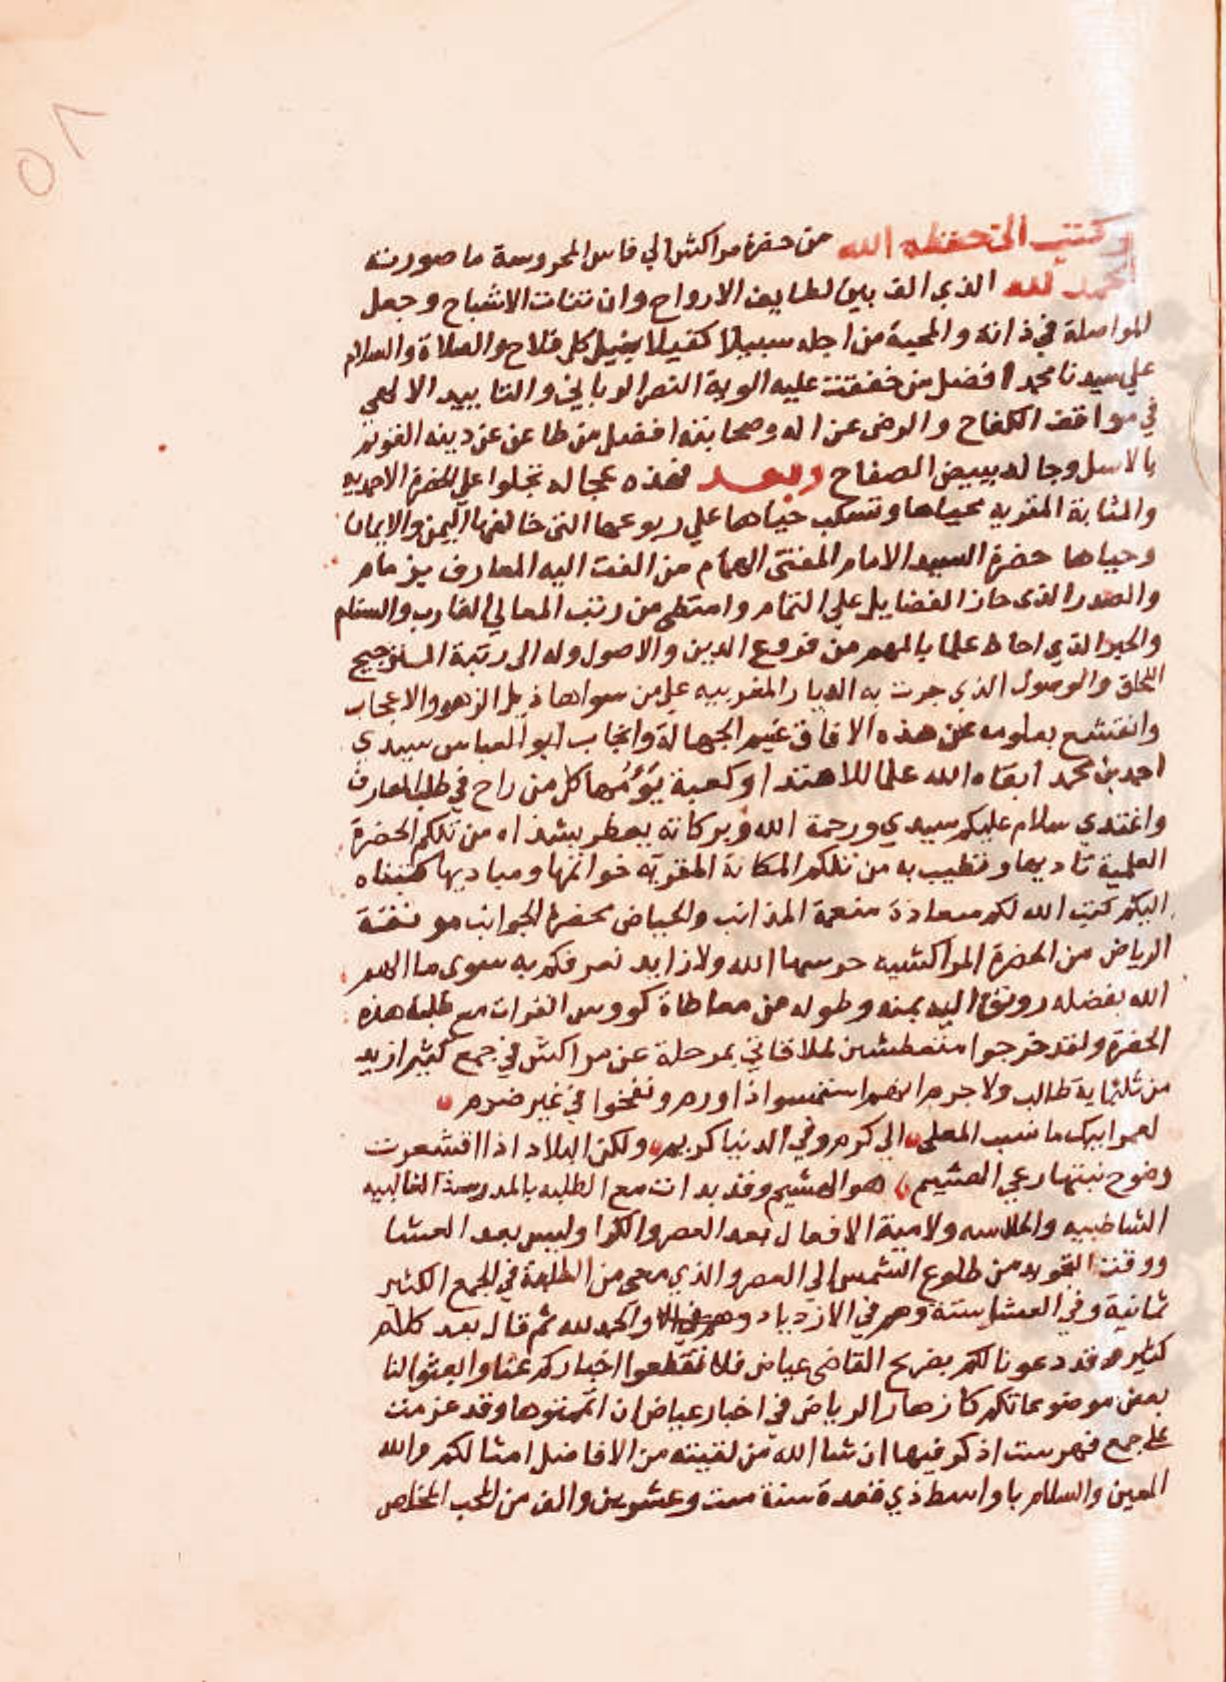 ٥٨
وكتب الي حفظه الله من حضرة مراكش الي فاس المحروسة ما صورته
الحمد لله الذي الف بين لطايف الارواح وان تنات الاشباح وجعل
للمواصلة في ذاته والمحبة من اجله سبيلا كفيلا بنيل كل فلاح والصلاة والسلام
علي سيدنا محمد افضل من خفقت عليه الوية النصر الرباني والتاييد الالهي
في مواقف الكفاح والرضى عن اله وصحابته افضل من طاعن عن دينه القويم
بالاسل وجالد ببيض الصفاح وبعد فهذه عجالة تجلوا علي الحضرة الاحمدية
والمثابة المقرية محياها وتسكب حياها علي ربوعها التي حالفها اليمن والايمان
وحياها حضرة السيد الامام المفتى الهمام من القت اليه المعارف بزمام
والصدر الذى حاز الفضايل علي التمام وامتطى من رتب المعالي الغارب والسنام
والحبر الذي احاط علما بالمهم من فروع الدين والاصول وله الى رتبة الترجيح
اللحاق والوصول الذي جرت به الديار المغربيه علي من سواها ذيل الزهو والاعجاب
وانقشع بعلومه عن هذه الافاق غيم الجهالة وانجاب ابو العباس سيدي
احمد بن محمد ابقاه الله علما للاهتدا وكعبة يَؤُمُها كل من راح في طلب المعارف
واغتدي سلام عليكم سيدي ورحمة الله وبركاته يعطر بشذاه من تلكم الحضرة
العلمية ناديها وتطيب به من تلكم المكانة المقرية خواتمها ومباديها كتبناه
اليكم كتب الله لكم سعادة مفعمة المذانب والحياض مخضرة الجوانب مونقة
الرياض من الحضرة المراكشيه حرسها الله ولا زايد نعرفكم به سوى ما الهم
الله بفضله ووفق اليه بمنه وطوله من معاطاة كووس القرات مع طلبة هذه
الحضرة ولقد خرجوا متعطشين لملاقاتي بمرحلة عن مراكش في جمع كثير ازيد
من ثلثماية طالب ولا جرم انهم استسمنوا ذا ورم ونفخوا في غير ضرم
لعمر ابيك ما نسب المعلى الي كرم وفي الدنيا كريم ولكن البلاد اذا اقشعرت
وضوح نبتها رعي الهشيم هو الهشيم وقد بدات مع الطلبه بالمدرسة الغالبيه
الشاطبيه والخلاصه ولامية الافعال بعد العصر والكراوليس بعد العشا
ووقت التجويد من طلوع الشمس الي العصر والذي محي من الطلبة في الجمع الكثير
ثمانية وفي العشر ستة وهم في الازدياد والحمد لله ثم قال بعد كلام
كثير وقد دعونا لكم بضريح القاضى عياض فلا تقطعوا اخباركم عنا وابعثوا لنا
بعض موضوعاتكم كازهار الرياض في اخبار عياض ان اتممتوها وقد عزمت
علي جمع فهرست اذكر فيها ان شا الله من لقيته من الافاضل امثالكم والله
المعين والسلام باواسط ذي قعدة سنة ست وعشرين والف من المحب المخلص